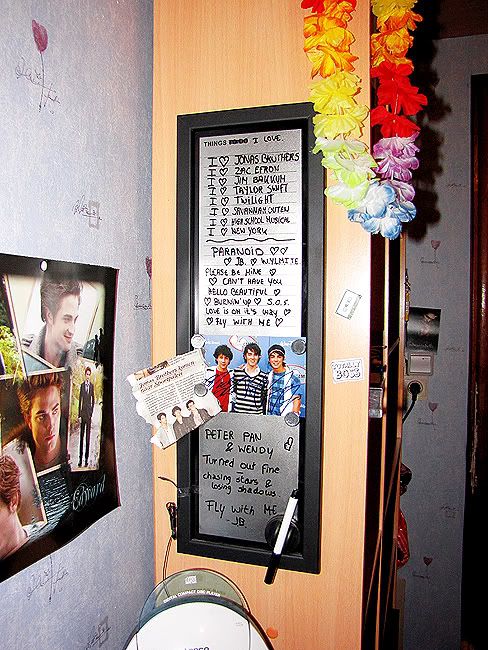 THINGS TO DO I LOVE.
I ♡ JONAS BROTHERS
I ♡ ZAC EFRON
I ♡ JIM BAKKUM
I ♡ TAYLOR SWIFT
I ♡ TWILIGHT
I ♡ SAVANNAH OUTEN
I ♡ HIGH SCHOOL MUSICAL
I ♡ NEW YORK
PARANOID ♡♡
♡ JB. ♡ WYLMITE
PLEASE BE MINE ♡
♡ CAN'T HAVE YOU
HELLO BEAUTIFUL ♡
♡ BURNIN' UP ♡ S.O.S.
LOVE IS ON IT'S WAY ♡
♡ FLY WITH ME ♡
TOTALLY
BOSS
PETER PAN
& WENDY
Turned out fine
chasing stars &
losing shadows
Fly with ME
-JB.
Edward
DIGITAL COMPACT DISC PLAYER